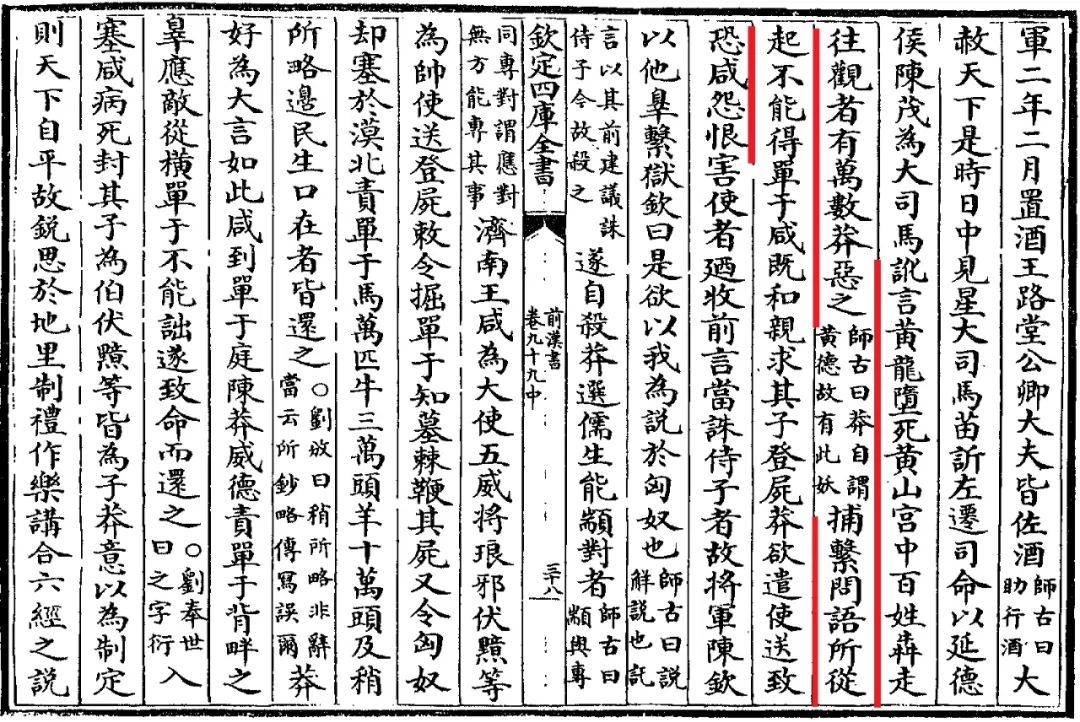 軍二年二月置酒王路堂公卿大夫皆佐酒師古曰助行酒大
赦天下是時日中見星大司馬苗訢左遷司命以延德
侯陳茂為大司馬訛言黃龍墮死黃山宫中百姓犇走
往觀者有萬數莽惡之師古曰莽自謂黃德故有此妖捕繫問語所從
起不能得單于咸既和親求其子登屍莽欲遣使送致
恐咸怨恨害使者廼收前言當誅侍子者故將軍陳欽
以他辠繫獄欽曰是欲以我為説於匈奴也師古曰説解説也託
言以其前建議誅侍子今故殺之遂自殺莽選儒生能顓對者師古曰顓與專
欽定四庫全書
前漢書
卷九十九中
三十八
同專對謂應對無方能專其事濟南王咸為大使五威將琅邪伏黯等
為帥使送登屍敕令掘單于知墓棘鞭其屍又令匈奴
却塞於漠北責單于馬萬匹牛三萬頭羊十萬頭及稍
所略邊民生口在者皆還之○劉攽曰稍所略非辭當云所鈔略傳寫誤爾莽
好為大言如此咸到單于庭陳莽威德責單于背畔之
辠應敵從橫單于不能詘遂致命而還之○劉奉世曰之字衍入
塞咸病死封其子為伯伏黯等皆為子莽意以為制定
則天下自平故鋭思於地里制禮作樂講合六經之説